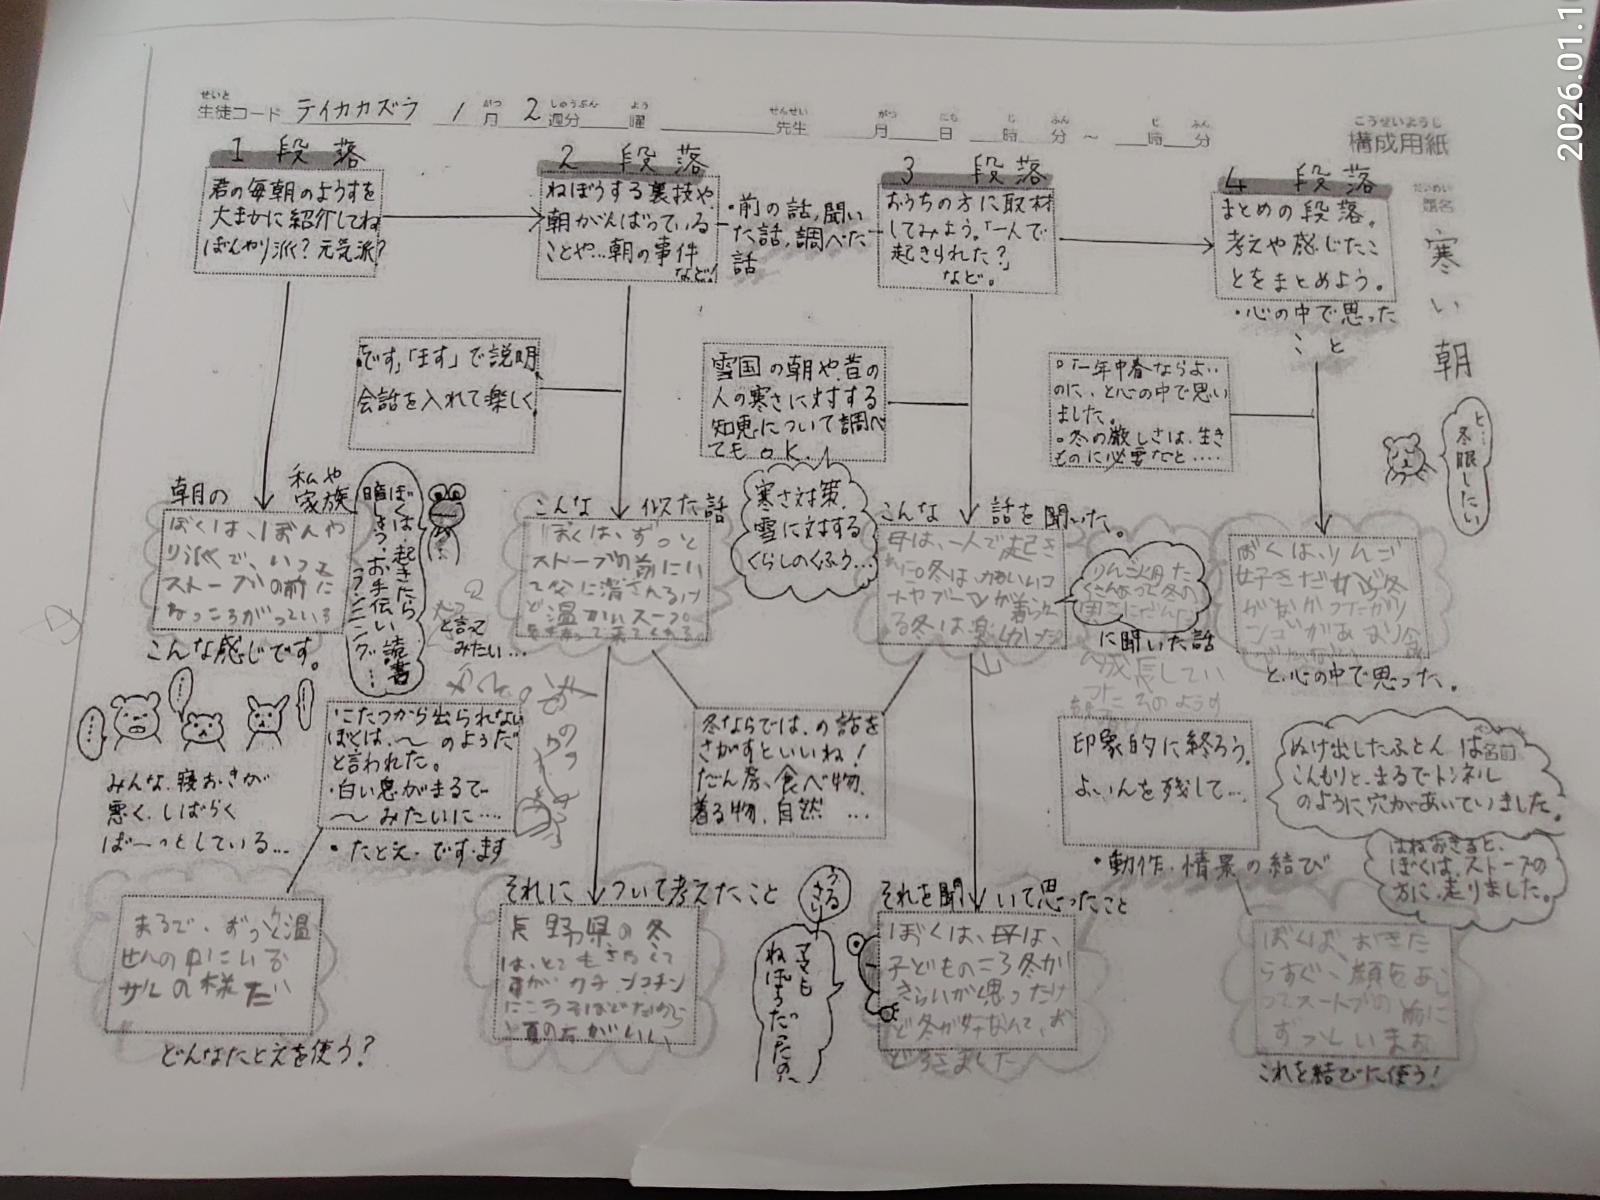 2026.01.1
せいと
生徒コード テイカカズラ 1月 2週分 曜 先生 月 日 時 分 ~ 時 分
がつ しゅうぶん よう せんせい がつ にち じ ふん じ ふん
こうせいようし
構成用紙
だいめい
題名
寒い朝
1 段落
君の毎朝のようすを
大まかに紹介してね
ぼんやり派?元気派?
2 段落
ねぼうする裏技や、
朝がんばっている
ことや…朝の事件
など!
・前の話,聞い
た話,調べた
話
3 段落
おうちの方に取材
してみよう。「一人で
起きられた?」
など。
4 段落
まとめの段落。
考えや感じたこ
とをまとめよう。
・心の中で思った
こと
「です」「ます」で説明
会話を入れて楽しく
雪国の朝や、昔の
人の寒さに対する
知恵について調べ
てもOK.
。「一年中春ならよい
のに、と心の中で思い
ました。
。冬の厳しさは、生き
ものに必要だと.....
と…
冬眠したい
朝の 私や
家族
ぼくは、ぼんや
り派で、いつも
ストーブの前に
なっころがっている
こんな感じです。
ぼくは、起きたら
暗しょう・お手伝い・読書
ランニング…
こんな 似た話
ぼくは、ずっと
ストーブの前にい
て父に消されるけ
ど温かいスープ
と言って
みたい…
寒さ対策、
雪に対する
くらしのくふう…
こんな 話を聞いた。
母は、一人で起き
に聞いた話
ぼくは、りんご
好きだけど冬
と、心の中で思った。
みんな、寝おきが
悪く、しばらく
ぼーっとしている…
・こたつから出られない
ぼくは、〜のようだ
と言われた。
・白い息がまるで
〜みたいに….
・たとえ・です・ます
冬ならでは、の話を
さがすといいね!
だん房、食べ物、
着る物、自然 …
印象的に終ろう。
よいんを残して…
・動作、情景の結び
ぬけ出したふとんは名前
こんもりと、まるでトンネル
のように穴があいていました。
はねおきると、
ぼくは、ストーブの
方に走りました。
まるで、ずっと温
せんの中にいる
サルの様だ
どんなたとえを使う?
それに ついて考えたこと
長野県の冬
は、とてもさむくて
夏の方がいい
うさる
ママも
ねぼうだったの、
それを聞いて思ったこと
ぼくは、母は、
子どものころ冬が
きらいか思ったけ
ど冬が好なんて、お
どろきました
ぼくは、おきた
らすぐ、顔をあら
ってストーブの前に
ずっといます
これを結びに使う!